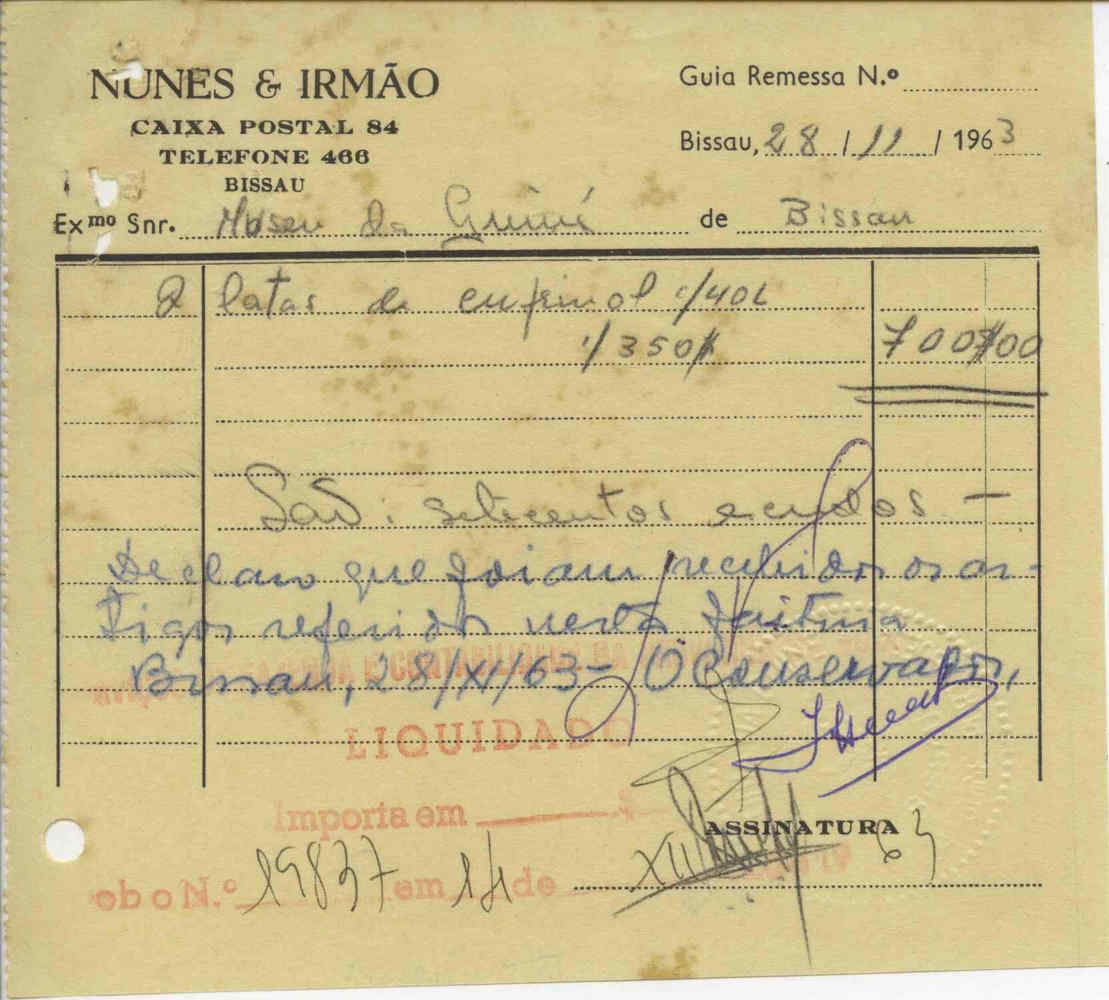 NUNES & IRMÃO
CAIXA POSTAL 84
TELEFONE 466
BISSAU
Guia Remessa N.º
Bissau, 28 / 11 / 1963
Exmo Snr. Museu da Guiné de Bissau
2 latas de c/40L
1/350$ 700$00
São: setecentos escudos —
Declaro que foram recebidos os ar-
tigos referidos nesta factura
Bissau, 28/XI/63 – O Conservador,
E CONTABILIDADE DA
LIQUIDADO
Importa em $
ASSINATURA
ob o N.º 19837 em 14 de XII 63